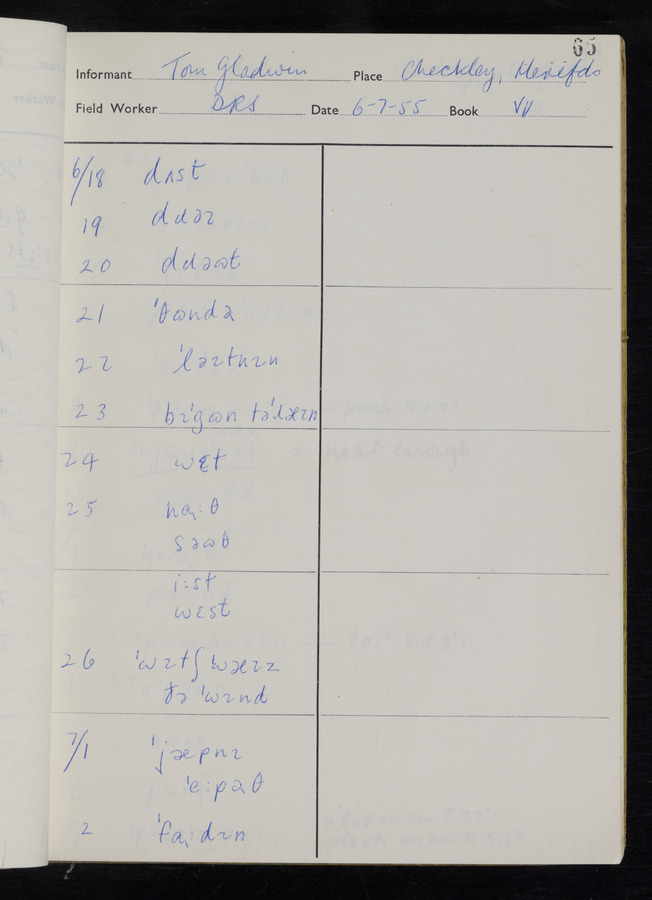 65
Informant Tom Gladwin Place Checkley, Herefds
Field Worker DRS Date 6-7-55 Book VV
6/18 dʌst
19 dɹəɪ
20 dɹəɷt
21 ˈθɷndə
22 ˈləɪtnɪn
23 bɪˈgɷn təˈɹæɪn
24 wɛt
25 nɑ:θ
səɷθ
i:st
wɛst
26 ˈwɪtʃ ˈwæɪz
ðə ˈwɪnd
7/1 ˈjæpnɪ
ˈe:pəθ
2 ˈfɑ:dɪn